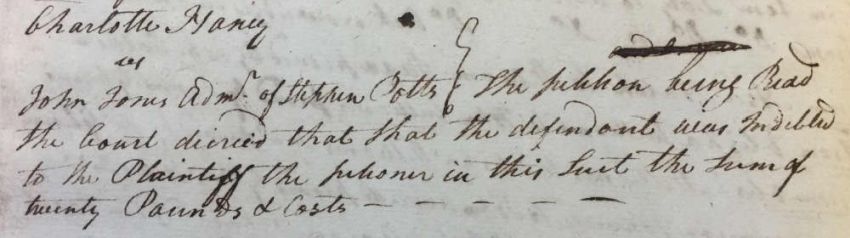 Charlotte Haney
vs
John Jones Adm.r of Stephen Potts } The petition being Read
the Court decried that that the defendant was Indebted
to the Plaintiff the petioner in this Suit the Sum of
twenty Pounds & Costs — — — — —